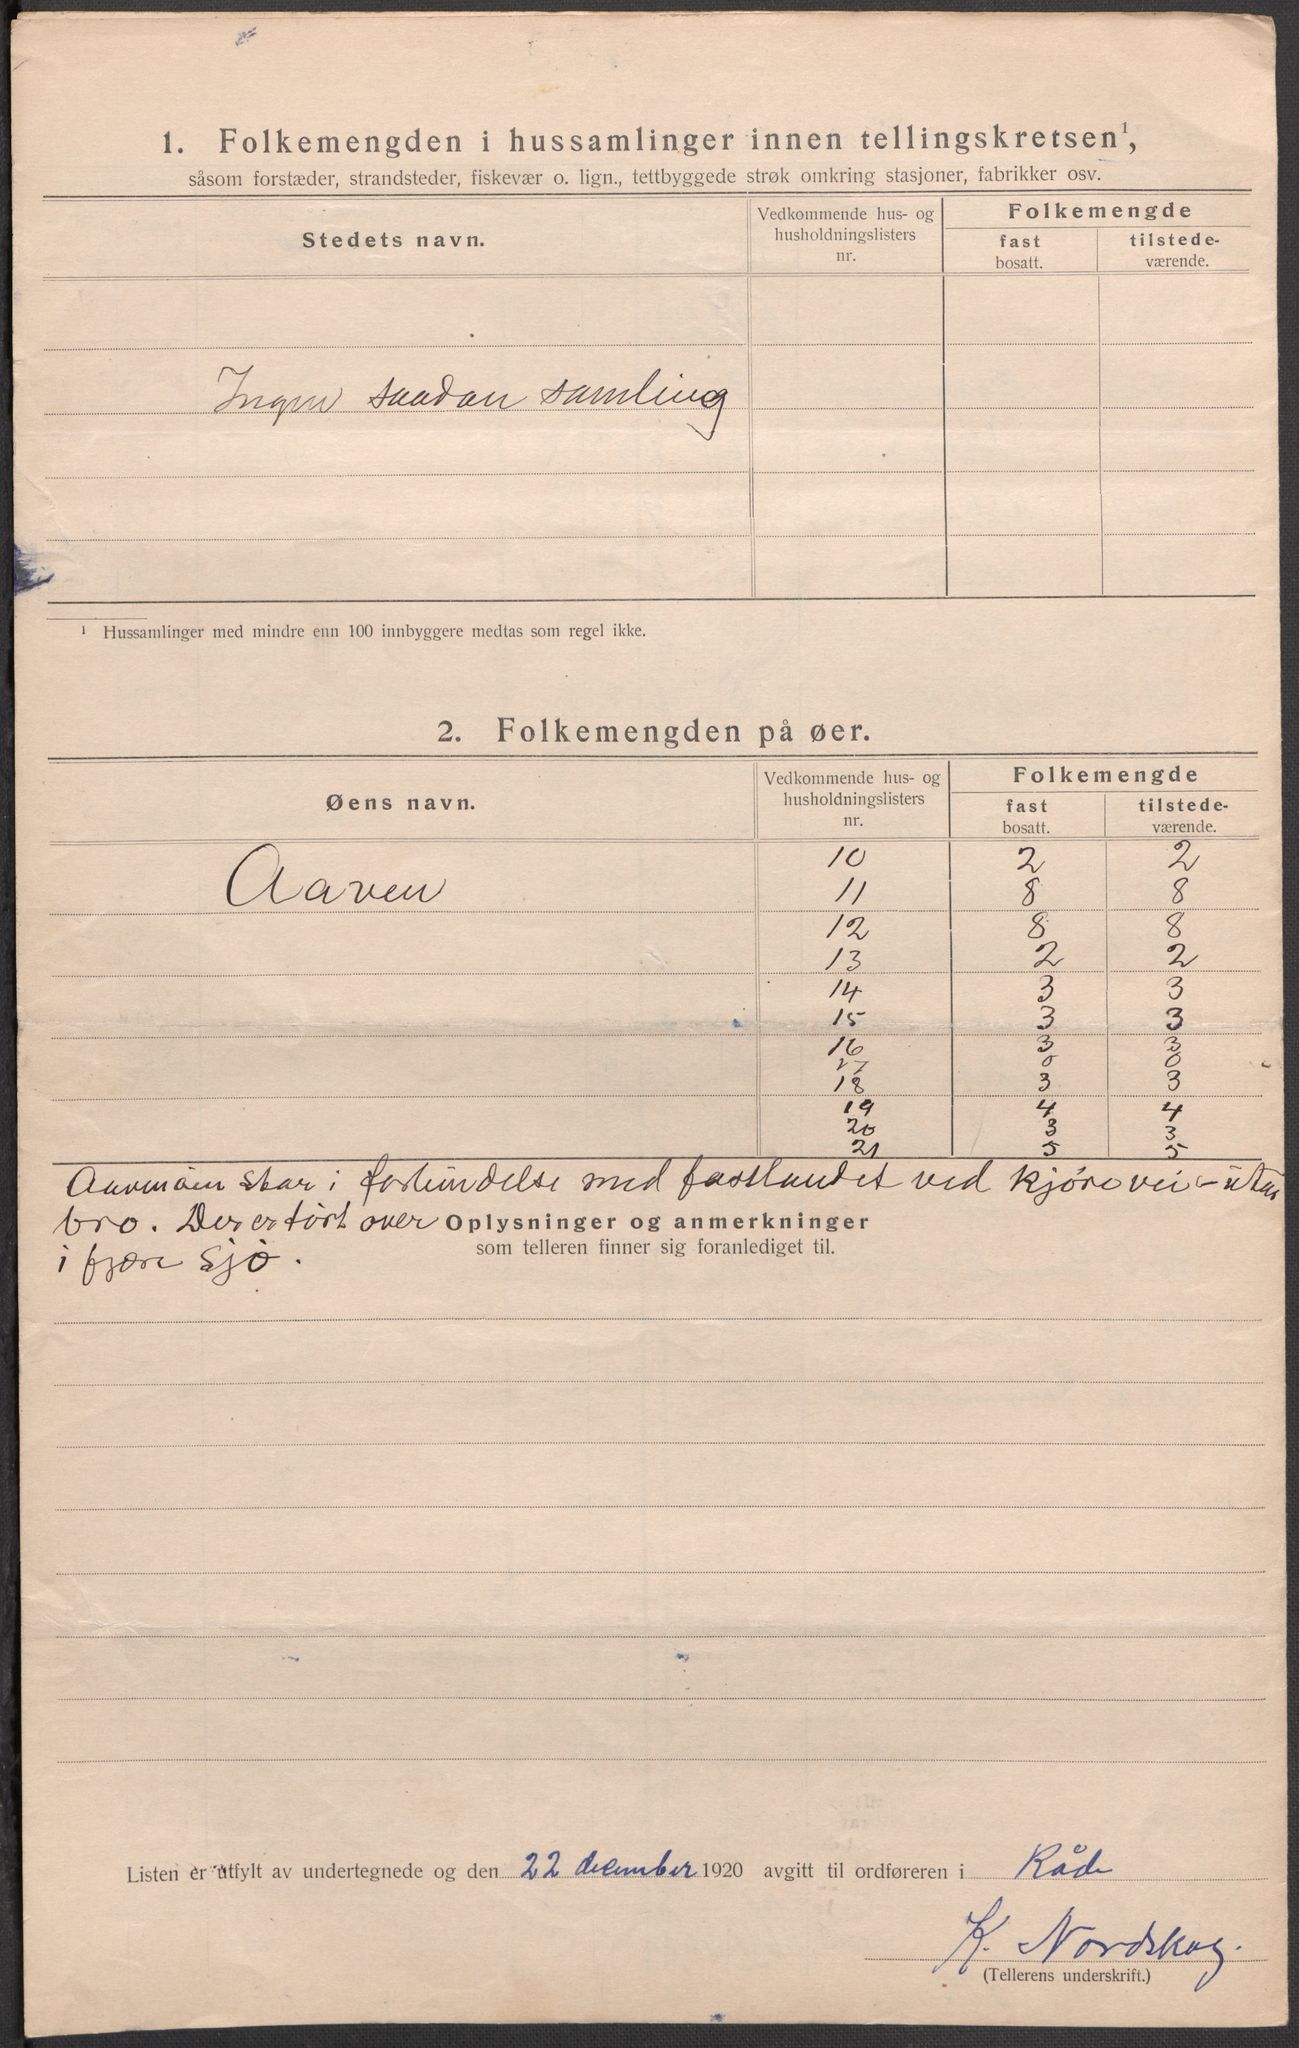 1. Folkemengden i hussamlinger innen tellingskretsen¹,
såsom forstæder, strandsteder, fiskevær o. lign., tettbyggede strøk omkring stasjoner, fabrikker osv.
Stedets navn.
Vedkommende hus- og husholdningslisters nr.
Folkemengde
fast bosatt.
tilstede-værende.
Ingen saadan samling
¹ Hussamlinger med mindre enn 100 innbyggere medtas som regel ikke.
2. Folkemengden på øer.
Øens navn.
Vedkommende hus- og husholdningslisters nr.
Folkemengde
fast bosatt.
tilstede-værende.
Aaven
10 2 2
11 8 8
12 8 8
13 2 2
14 3 3
15 3 3
16 3 3
17 0 0
18 3 3
19 4 4
20 3 3
21 5 5
staar i forbindelse med fastlandet ved kjørevei - uten
bro. Der er tørt over
i fjære sjø.
Oplysninger og anmerkninger
som telleren finner sig foranlediget til.
Listen er utfylt av undertegnede og den 22 december 1920 avgitt til ordføreren i Råde
K. Nordskog.
(Tellerens underskrift.)